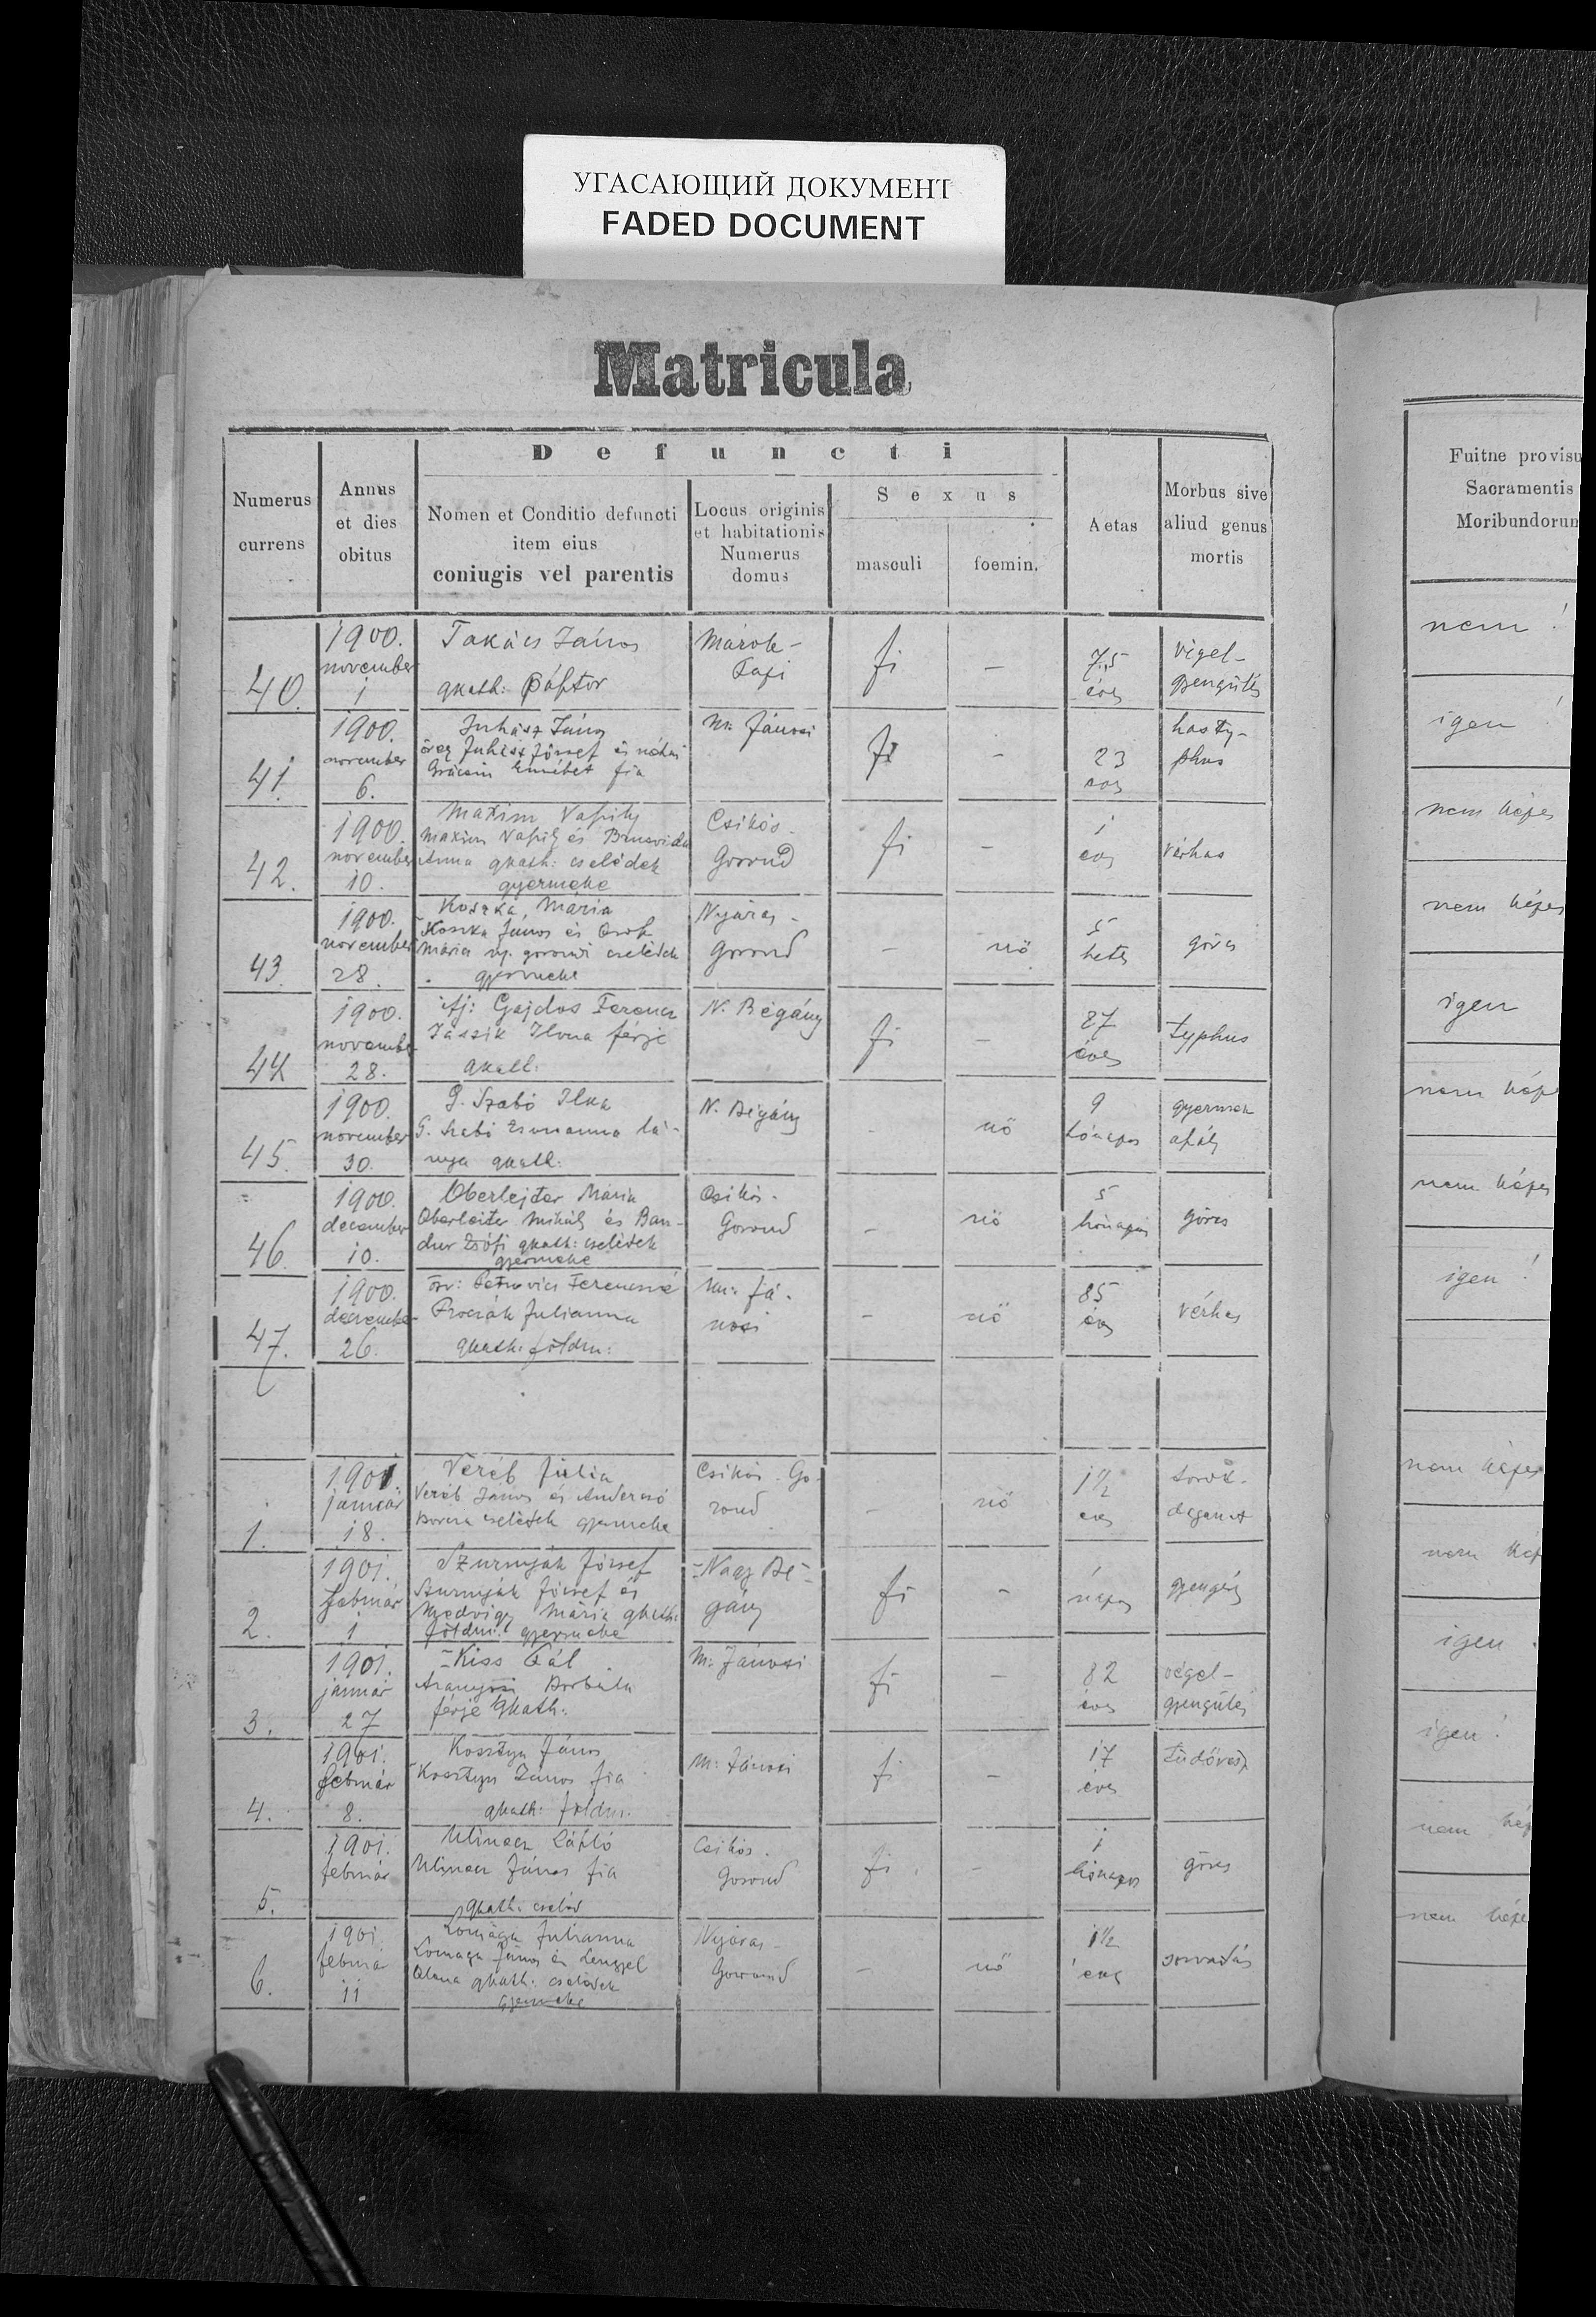 УГАСАЮЩИЙ ДОКУМЕНТ
FADED DOCUMENT
Matricula
Defuncti
Numerus currens
Annus et dies obitus
Nomen et Conditio defuncti item eius coniugis vel parentis
Locus originis et habitationis Numerus domus
Sexus
masculi
foemin.
Aetas
Morbus sive aliud genus mortis
Fuitne provisu
Sacramentis
Moribundorun
40. 1900. november 1 Takács János gkath: Márok- fi – 75 éves végel- gyengülés nem!
41. 1900. november 6. Juhász János öreg Juhász József és néhai Erzsébet fia M. Jánosi fi – 23 éves hasty- phus igen!
42. 1900. november 10. Maxim Vaszily Maxim Vaszily és Anna gkath: cselédek gyermeke Csikós- Gorond fi – 1 éves vérhas nem képes
43. 1900. november 28. Koszka Mária Koszka János és Mária ny. gorondi cselédek gyermeke Nyáras- Gorond – nő 5 hetes görcs nem képes
44 1900. november 28. ifj: Gajdos Ferencz Jászik Ilona férje gkath: N. Bégány fi – 27 éves typhus igen
45. 1900. november 30. G. Szabó Ilka G. Szabó Zsuzsanna lá- nya gkath: N. Bégány – nő 9 hónapos gyermek aszály nem kép
46. 1900. december 10. Oberlejter Mária Oberleiter Mihály és Ban- dur Zsófi gkath: cselédek gyermeke Csikós- Gorond – nő 5 hónapos görcs nem képes
47. 1900. december 26. özv: Petrovics Ferenczné Julianna gkath: földm: M. Já- nosi – nő 85 éves vérhas igen!
1. 1901. január 18. Veréb Júlia Veréb János és Borcsa cselédek gyermeke Csikós-Go- rond – nő 1½ éves torok- daganat nem képes
2. 1901. február 1 Szurnyák József Szurnyák József és Medvigy Mária gkath: földm: gyermeke Nagy Bé- gány fi – napos gyengés nem kép
3. 1901. január 27 Kiss Pál Aranyosi Borbála férje gkath: M: Jánosi fi – 82 éves végel- gyengülés igen.
4. 1901. február 8. Kosztyu János Kosztyu János fia gkath: földm: M: Jánosi fi – 17 éves tüdővész igen!
5. 1901. február László János fia gkath: cseléd Csikós- Gorond fi – 1 hónapos görcs nem kép
6. 1901. február 11 Lomága Julianna Lomaga János és Lengyel gkath: cselédek gyermeke Nyáras- Gorond – nő 1½ éves sorvadás nem képe